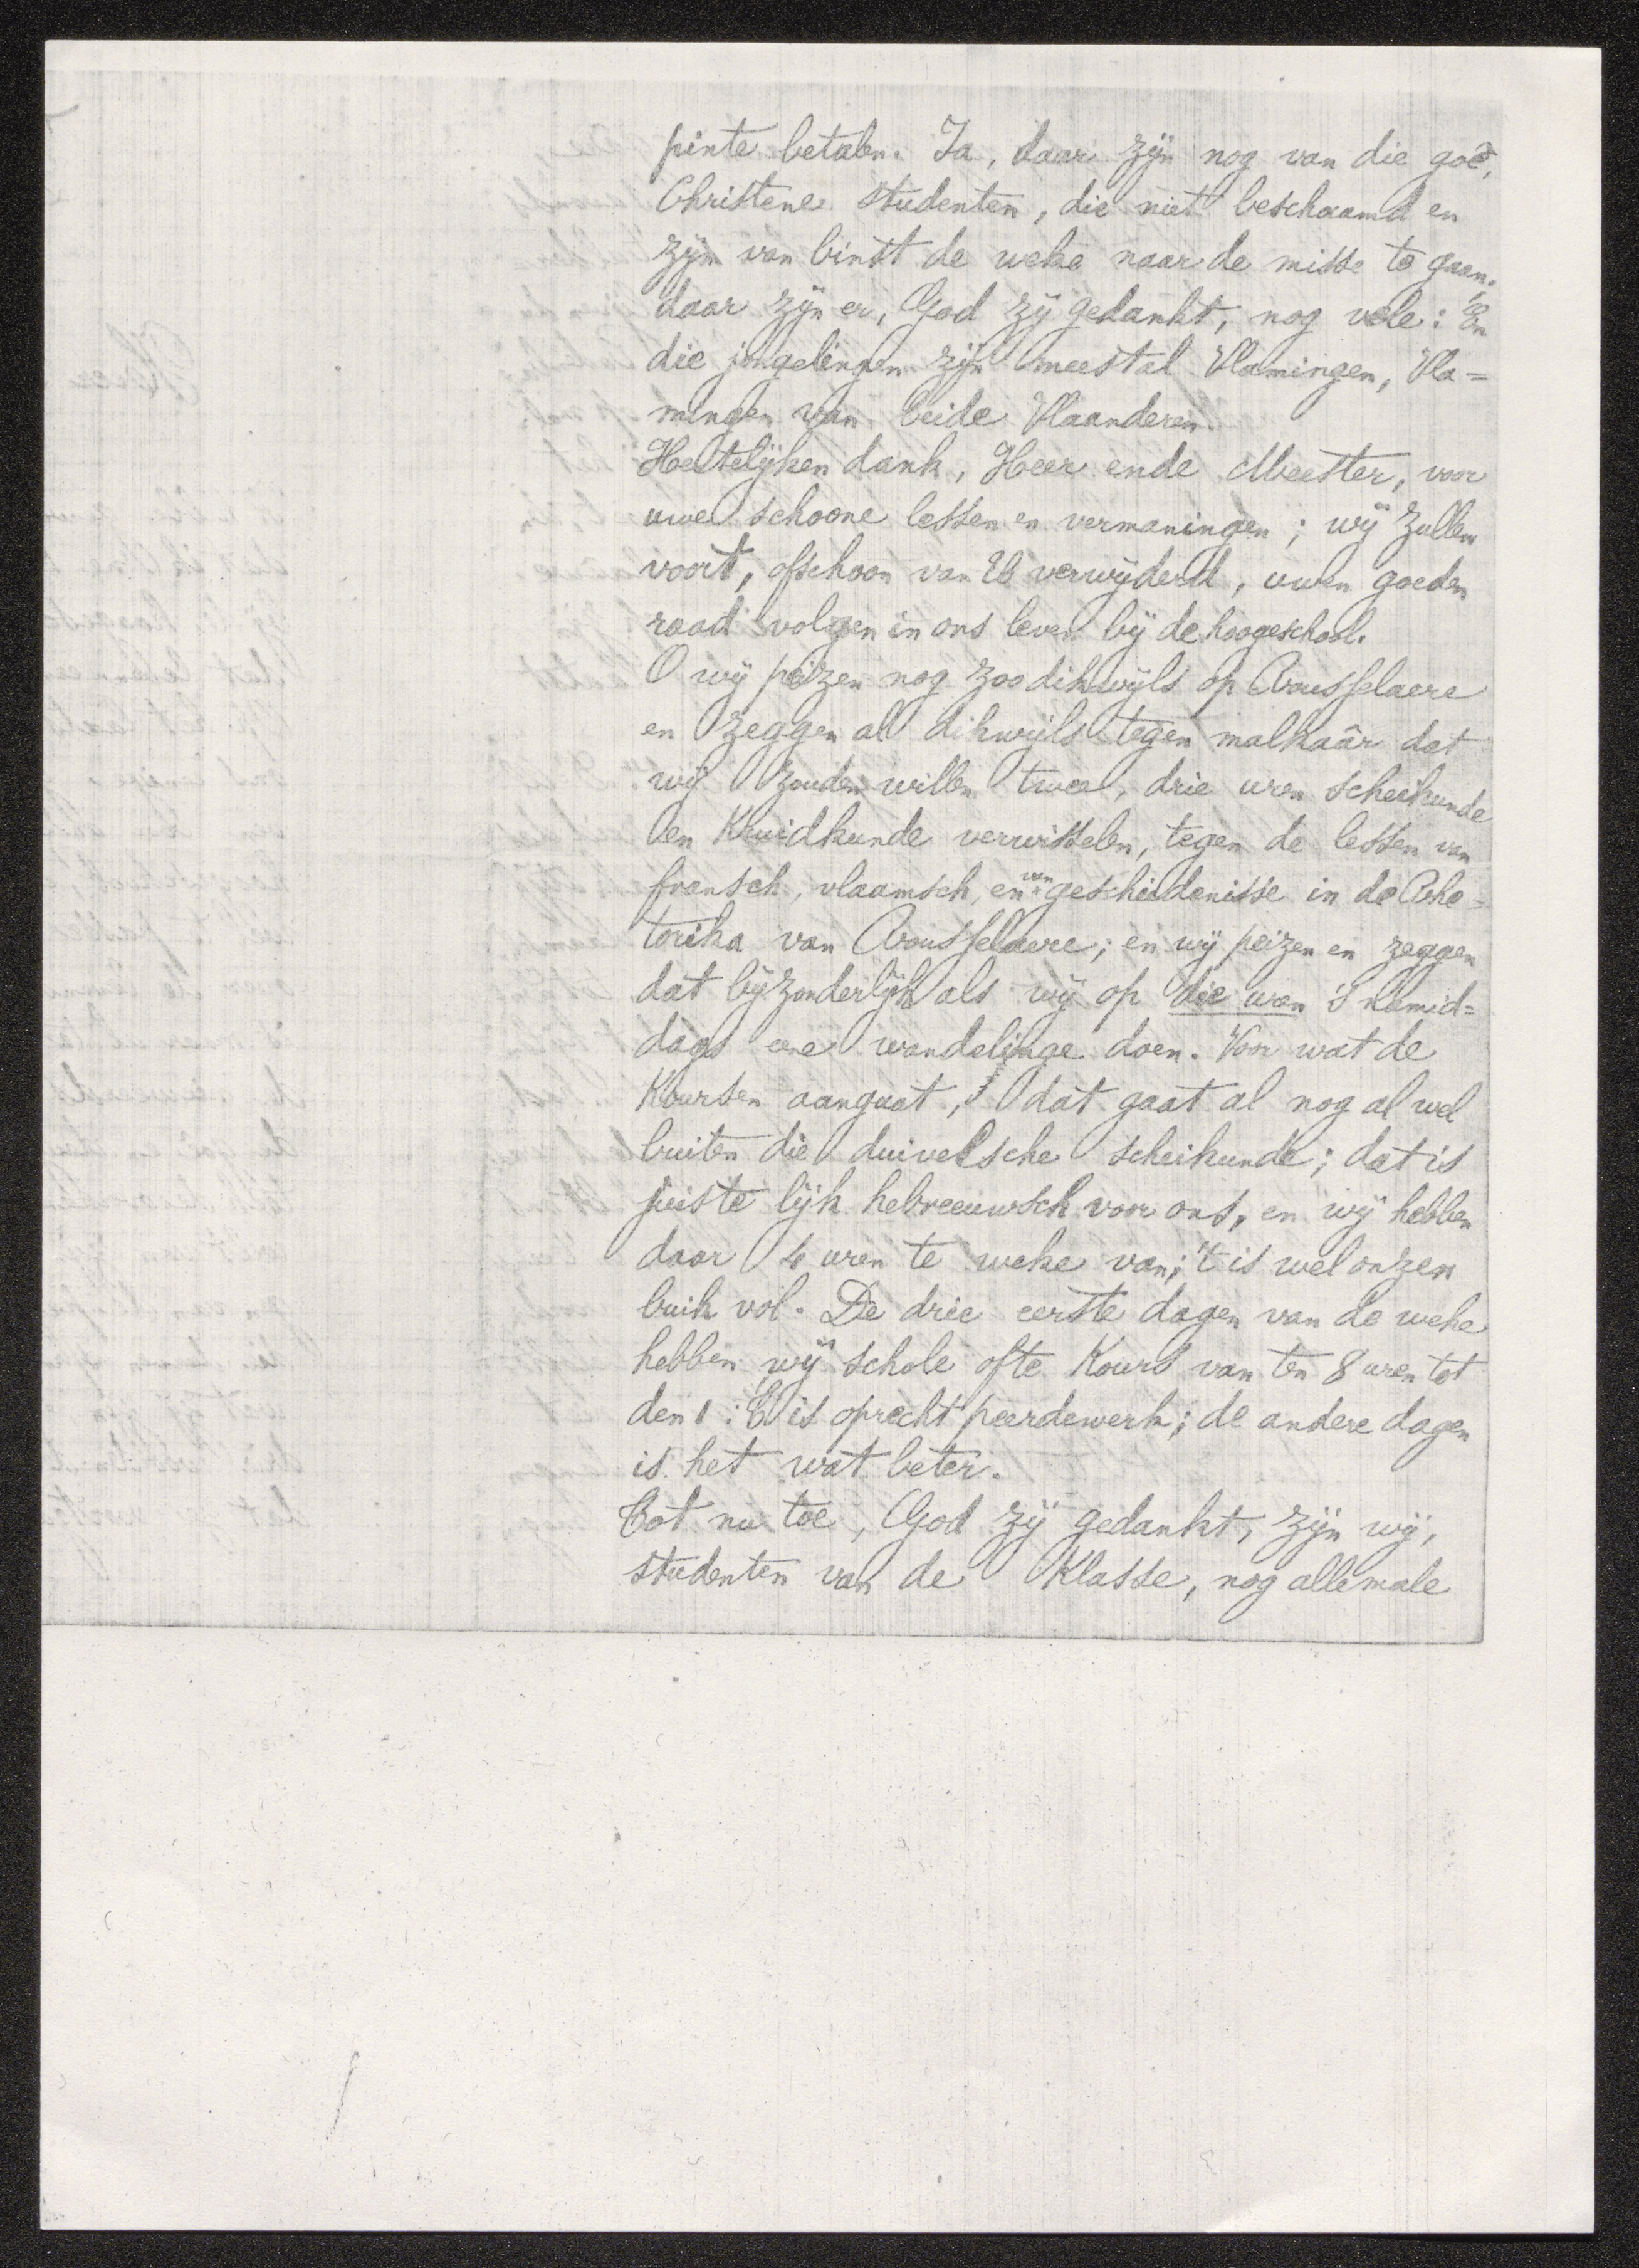 pinte betalen. Ja, daar zijn nog van die goê,
Christene studenten, die niet beschaamd en
zijn van binst de weke naar de misse te gaan.
daar zijn er, God zij gedankt, nog vele: En
die jongelingen zijn meestal Vlamingen, Vla=
mingen van beide Vlaanderen.
Hertelijken dank, Heer ende Meester, voor
uwe schoone lessen en vermaningen; wij zullen
voort, ofschoon van U verwijderd, uwen goeden
raad volgen in ons leven bij de hoogeschool.
O wij peizen nog zoo dikwijls op Rousselaere
en zeggen al dikwijls tegen malkaâr dat
wij zouden willen twee, drie uren scheikunde
en Kruidkunde verwisselen, tegen de lessen van
fransch, vlaamsch, en van geschiedenisse in de Rhe=
torika van Rousselaere; en wij peizen en zeggen
dat bijzonderlijk als wij op die uren 's namid=
dags eene wandelinge doen. Voor wat de
Koursen aangaat, dat gaat al nog al wel
buiten die duivelsche scheikunde; dat is
juiste lijk hebreeuwsch voor ons, en wij hebben
daar uren te weke van; 't is wel onzen
buik vol. De drie eerste dagen van de weke
hebben wij schole ofte Kours van ten 8 uren tot
den 1: 't is oprecht peerdewerk; de andere dagen
is het wat beter.
Tot nu toe, God zij gedankt, zijn wij,
studenten van de Klasse, nog allemale